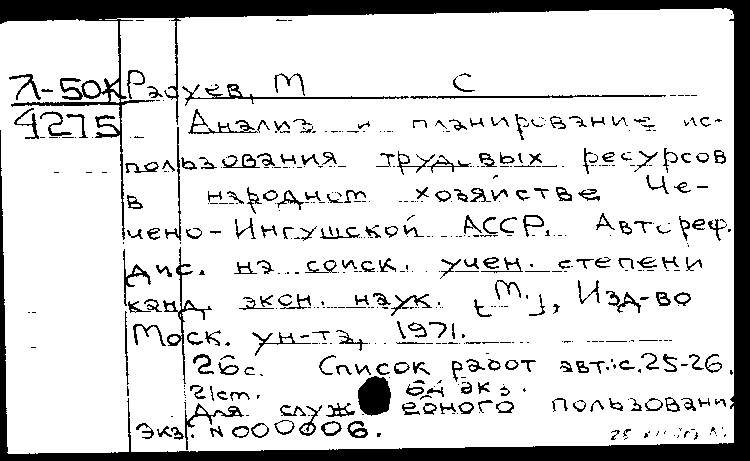 Л-50К Расуев, М С
4275 Анализ и планирование ис-
пользования трудовых ресурсов
в народном хозяйстве Че-
чено-Ингушской АССР. Автореф.
дис. на соиск. учен. степени
канд. экон. наук. [М.], Изд-во
Моск. ун-та, 1971.
26с. Список работ авт.:с.25-26.
21см. 64 экз.
Для служебного пользования
Экз. N000006.